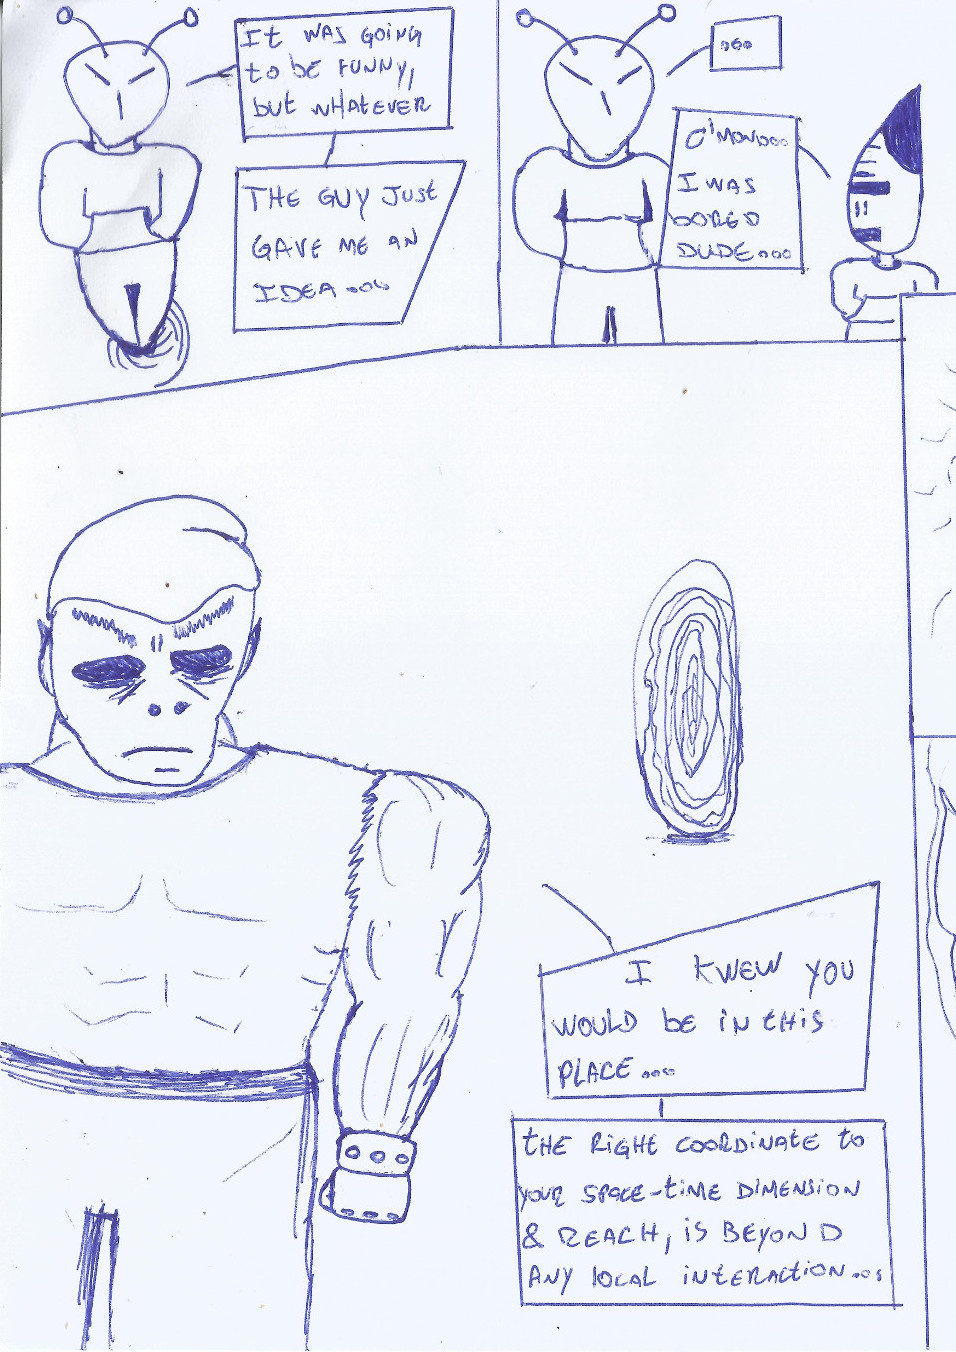 It WAS GOING
to bE FUNNY,
bUt WHATEVER
THE GUY JUST
GAVE ME AN
IDEA...
...
C'MON...
I WAS
BORED
DUDE...
I KNEW YOU
WOULD bE iN tHiS
PLACE...
tHE RiGHt COORDiNAtE to
YOUR SPACE-tiME DiMENSiON
& REACH, iS BEYOND
ANY LOCAL iNtERACtiON...